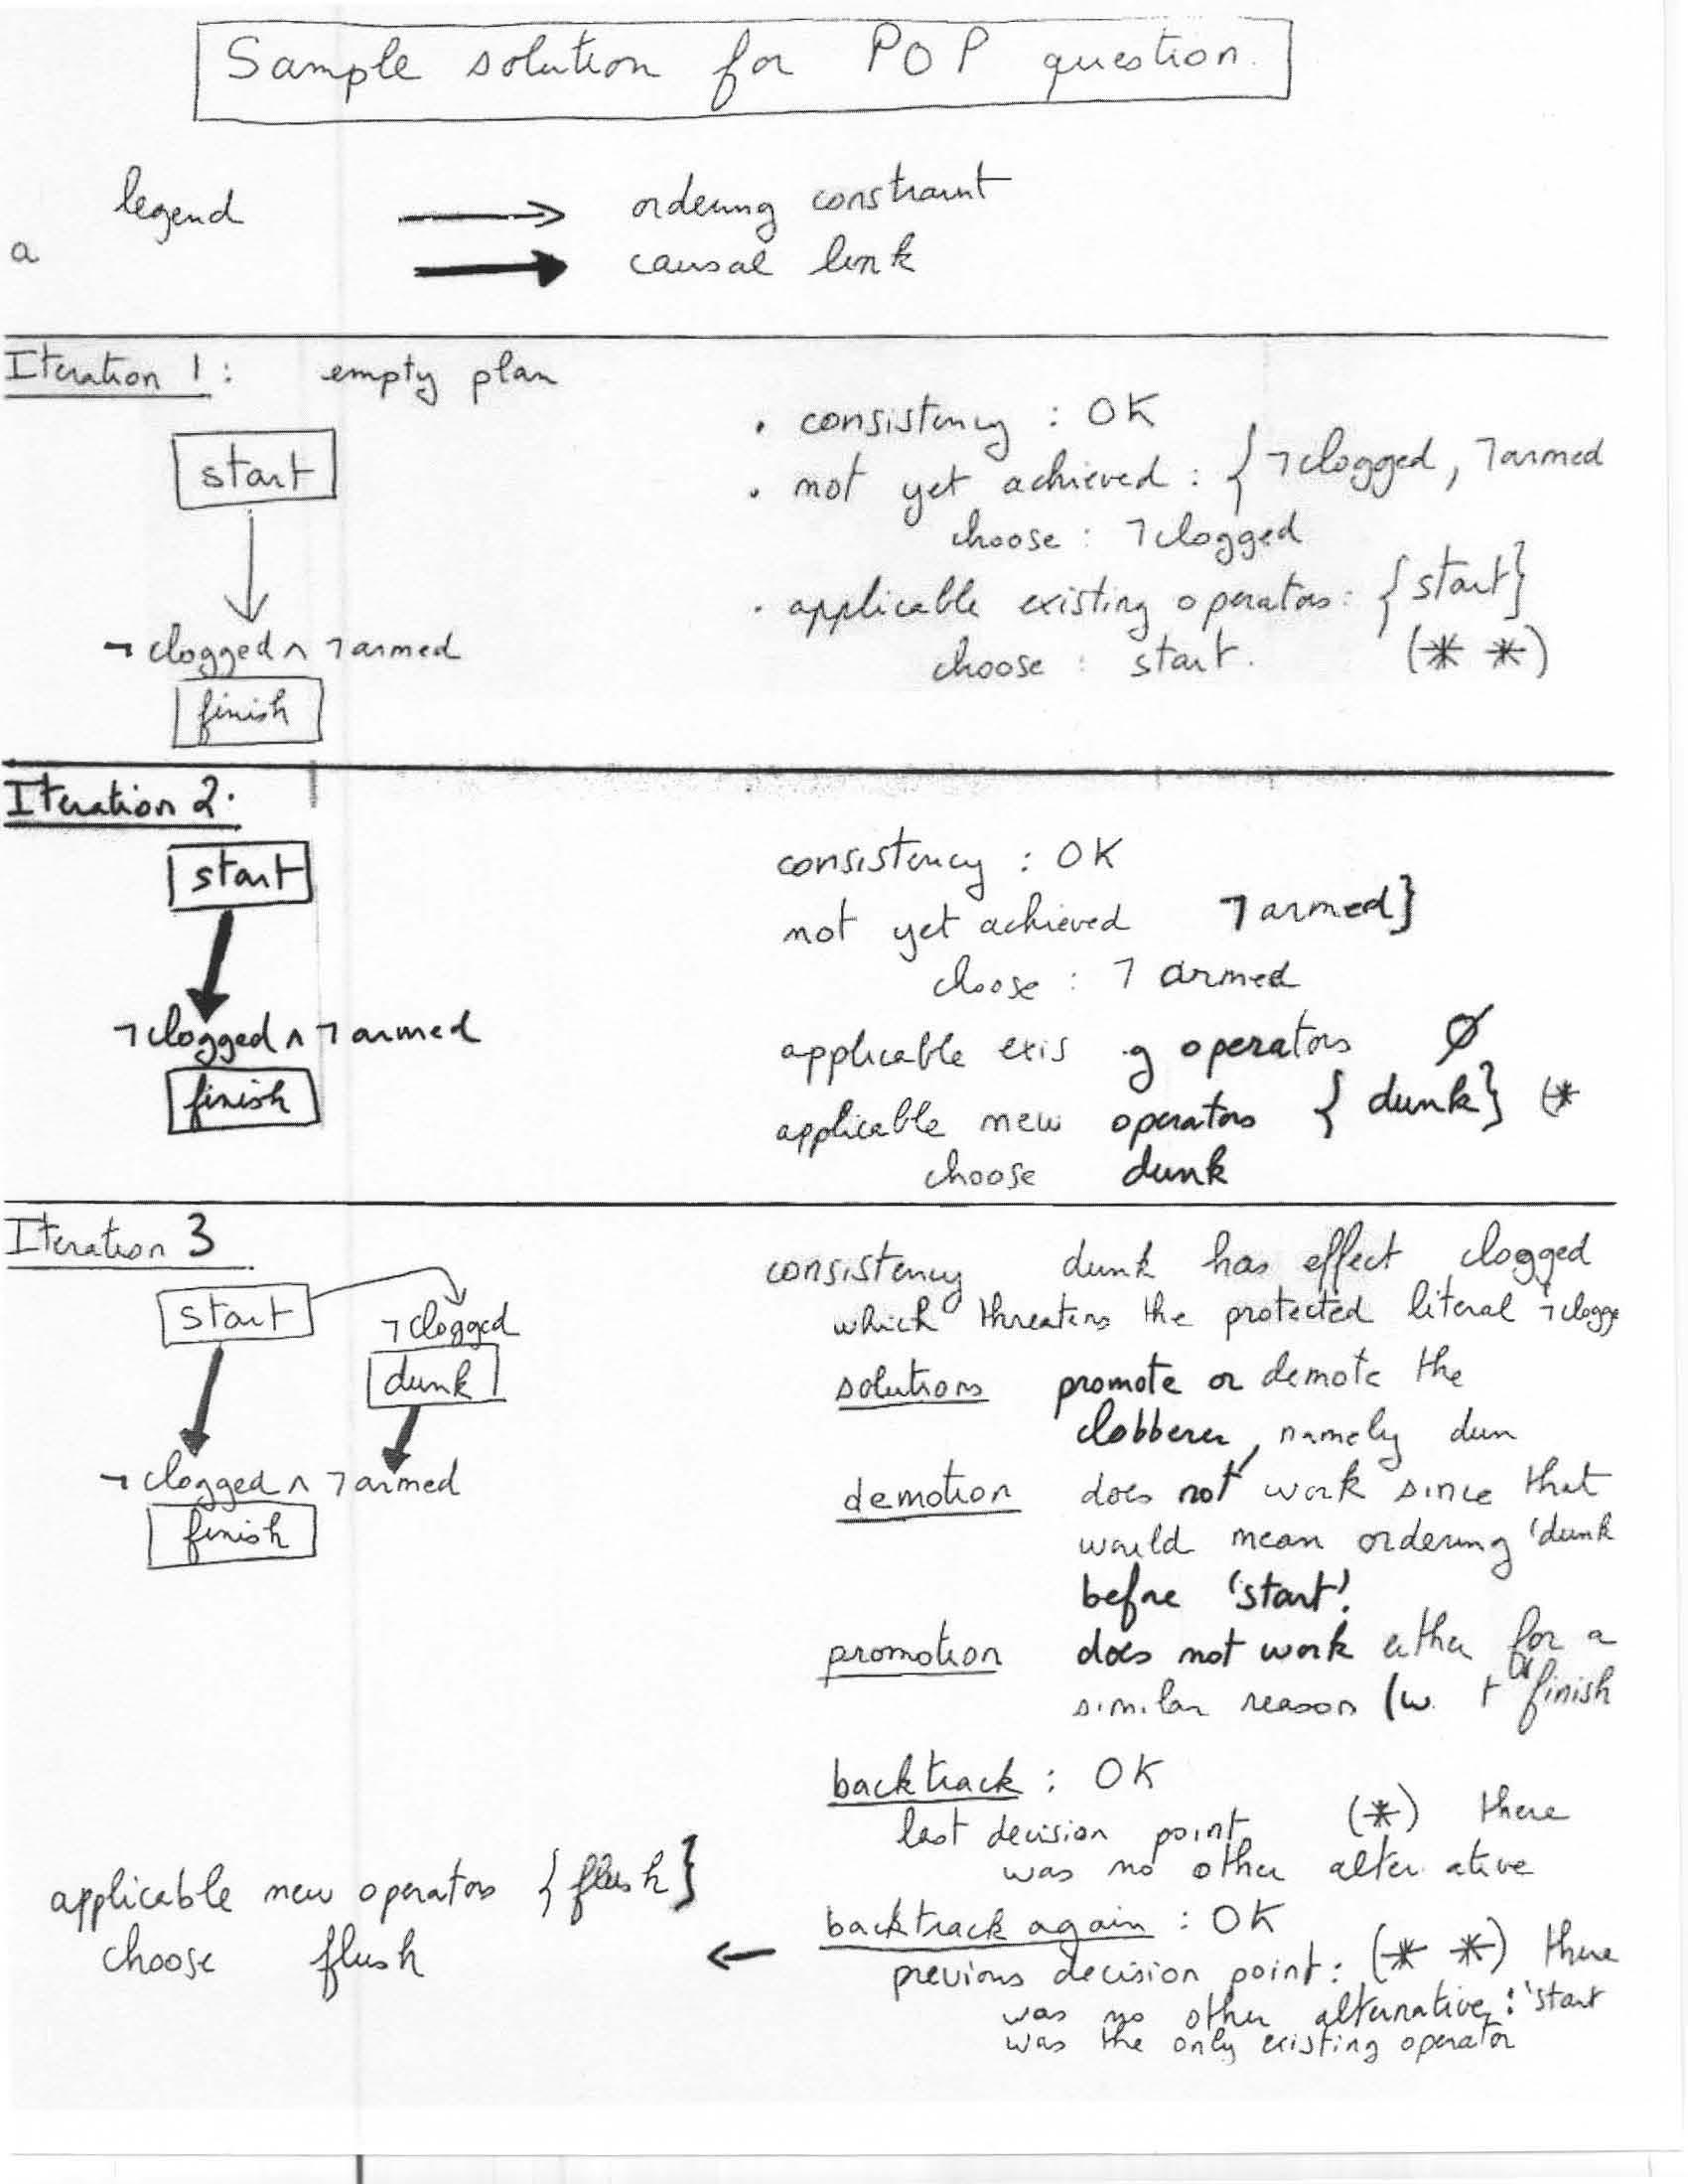 Sample solution for POP question.
legend
ordering constraint
a
causal link
Iteration 1: empty plan
start
¬clogged ∧ ¬armed
finish
• consistency : OK
• not yet achieved : { ¬clogged, ¬armed
choose : ¬clogged
• applicable existing operators: {start}
choose : start. (* *)
Iteration 2.
start
¬clogged ∧ ¬armed
finish
consistency : OK
not yet achieved ¬armed}
choose : ¬ armed
applicable exis g operators ∅
applicable new operators { dunk} (*
choose dunk
Iteration 3
start
¬clogged
dunk
¬clogged ∧ ¬armed
finish
consistency dunk has effect clogged
which threatens the protected literal ¬clogge
solutions promote or demote the
clobberer, namely dun
demotion does not work since that
would mean ordering 'dunk
before 'start'.
promotion does not work either for a
similar reason (w. t finish
backtrack : OK
last decision point (*) there
was no other alter ative
backtrack again : OK
previous decision point: (* *) there
was no other alternative : 'start
was the only existing operator
applicable new operators {flush}
choose flush